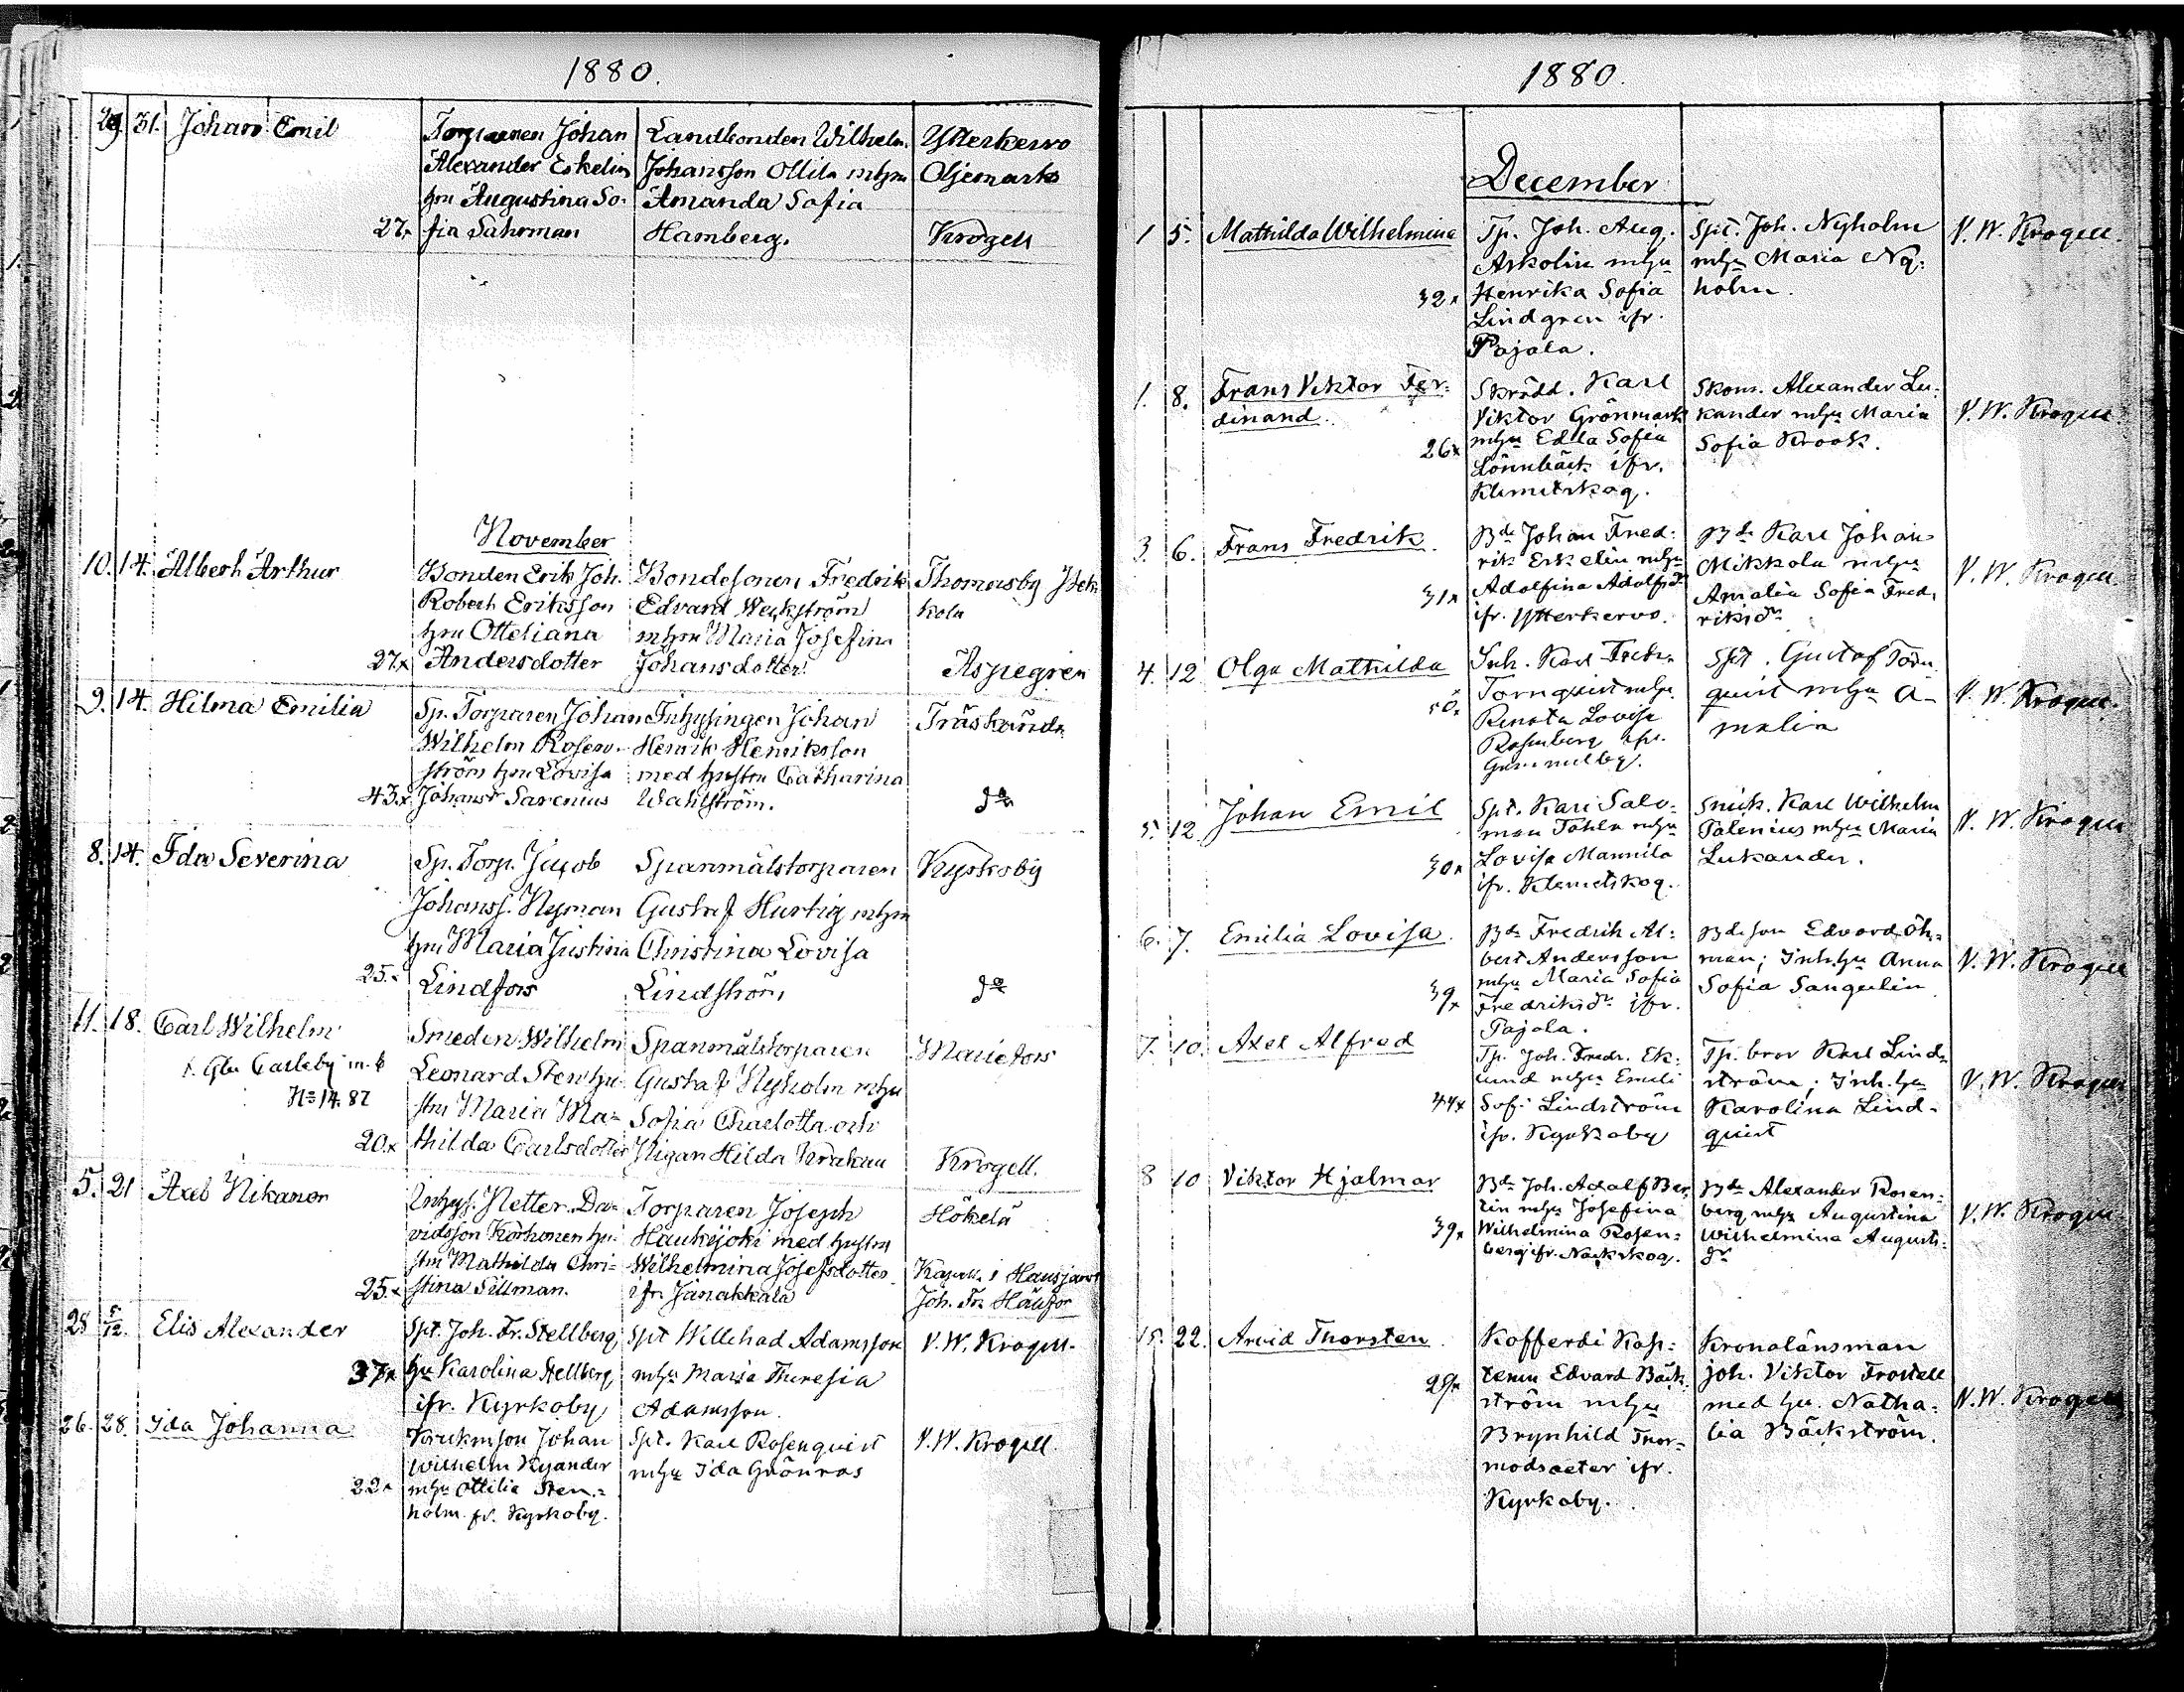 1880.
29. 31. Johan Emil
Torparen Johan
Alexander Eskelin
hu Augustina So-
27. fia Sahrman
Landbonden Wilhelm
Johansson Ollila mhu
Amanda Sofia
Hamberg.
Ytterkervo
Oljemarks
Krogell
November
10. 14. Albert Arthur
Bonden Erik Joh.
Robert Eriksson
hu Otteliana
27.x Andersdotter
Bondesonen Fredrik
Edvard Weckström
mhu Maria Josefina
Johansdotter
Thomasby
kola
Aspegren
9. 14. Hilma Emilia
Sp. Torparen Johan
Wilhelm Rosen-
ström hu Lovisa
43.x Johansdr Sarenius
Inhysingen Johan
Henrik Henriksson
med hustru Catharina
Wahlström.
Träskända
do
8. 14. Ida Severina
Sp. Torp. Jacob
Johanss. Nyman
hu Maria Justina
25.x Lindfors
Spanmålstorparen
Gustaf Hurtig mhu
Christina Lovisa
Lindström
Kyrkoby
do
11. 18. Carl Wilhelm
f. Gla Carleby m. b
No 14. 87
Smeden Wilhelm
Leonard Sten hu-
stru Maria Ma-
20.x thilda Carlsdotter
Spanmålstorparen
Gustaf Nyholm mhu
Sofia Charlotta och
Pigan Hilda Krakau
Mariefors
Krogell.
5. 21 Axel Nikanor
Inhys. Petter Da-
vidsson Korhonen hu-
stru Mathilda Chri-
25.x stina Sillman.
Torparen Joseph
Haukijoki med hustru
Wilhelmina Josefsdotter
ifr. Janakkala
Hökelä
Kapell. i Hausjärvi
Joh. Fr. Häijor
28 5/12. Elis Alexander
Spt. Joh. Fr. Stellberg,
37x hu Karolina Stellberg,
ifr. Kyrkoby
Spt Willehad Adamsson
mhu Maria Theresia
Adamsson.
V. W. Krogell.
26. 28. Ida Johanna
Johan
Wilhelm Kyander
22x mhu Ottilia Sten-
holm fr. Kyrkoby.
Spt. Karl Rosenqvist
mhu Ida Grönroos
V. W. Krogell.
1880.
December
1 5. Mathilda Wilhelmina
Tp. Joh. Aug.
Askolin mhu
32x Henrika Sofia
Lindgren ifr.
Pajala.
Spt. Joh. Nyholm
mhu Maria Ny-
holm.
V. W. Krogell.
1. 8. Frans Viktor Fer-
dinand.
Skrädd. Karl
Viktor Grönmark
26x mhu Edla Sofia
Lönnbäck ifr.
Klemetskog.
Skom. Alexander Lu-
kander mhu Maria
Sofia Krook.
V. W. Krogell.
3. 6. Frans Fredrik.
Bde Johan Fred-
rik Eskelin mhu
31x Adolfina Adolfsdr
ifr. Ytterkervo.
Bde Karl Johan
Mikkola mhu
Amalia Sofia Fred-
riksdr
V. W. Krogell.
4. 12 Olga Mathilda
Inh. Karl Fredr.
Tornqvist mhu
Renata Lovisa
Rosenberg ifr.
Gammelby.
Spt. Gustaf Törn-
quist mhu A-
malia
V. W. Krogell.
5. 12 Johan Emil
Spt. Karl Salo-
mon Tohla mhu
30x Lovisa Mannila
ifr. Klemetskog.
Snick. Karl Wilhelm
Palenius mhu Maria
Lukander.
V. W. Krogell
6. 7. Emilia Lovisa.
Bde Fredrik Al-
bert Andersson
mhu Maria Sofia
39x Fredriksdr ifr.
Pajala.
Bdeson Edvard Öh-
man; Inh.hu Anna
Sofia Sangelin
V. W. Krogell
7. 10. Axel Alfred
Tp. Joh. Fredr. Ek-
lund mhu Emili
44x Sofi Lindström
ifr. Kyrkoby
Tp. bror Karl Lind-
ström; Inh.hu
Karolina Lind-
quist
V. W. Krogell
8 10 Viktor Hjalmar
Bde Joh. Adolf Ber-
lin mhu Josefina
39x Wilhelmina Rosen-
berg ifr. Nackskog.
Bde Alexander Rosen-
berg mhu Augustina
Wilhelmina Augusts-
dr
V. W. Krogell
15. 22. Arvid Thorsten.
Kofferdi Kap-
29x tenen Edvard Bäck-
ström mhu
Brynhild Thor-
modsaeter ifr.
Kyrkoby.
Kronolänsman
Joh. Viktor Frostell
med hu. Natha-
lia Bäckström.
V. W. Krogell